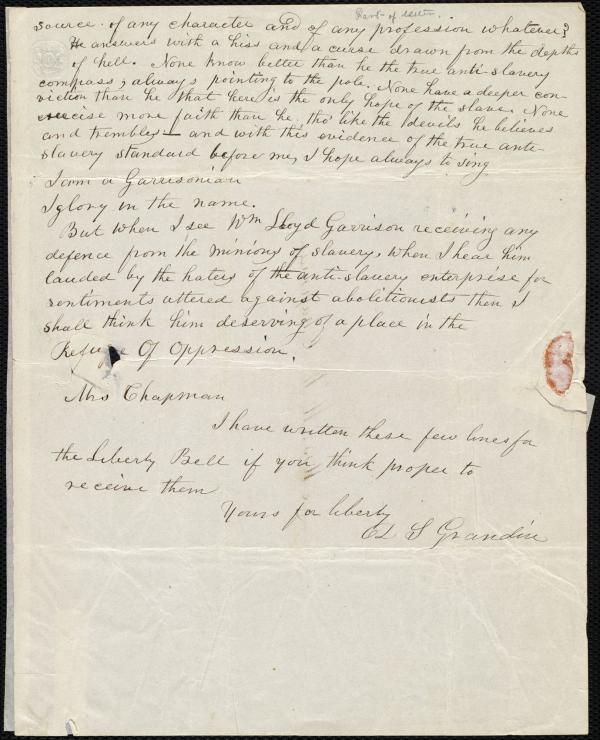 Part of letter.
source. of any character and of any profession whatever?
He answers with a hiss and a curse drawn from the depths
of hell. None know better than he the true anti-slavery
compass, always pointing to the pole. None have a deeper con-
viction than he that here is the only hope of the slave. None
exercise more faith than he, tho' like the devils he believes
and trembles — and with this evidence of the true anti-
slavery standard before me, I hope always to sing
I am a Garrisonian
I glory in the name.
But when I see Wm Lloyd Garrison receiving any
defence from the minions of slavery, when I hear him
lauded by the haters of the anti-slavery enterprise for
sentiments uttered against abolitionists then I
shall think him deserving of a place in the
Refuge Of Oppression.
Mrs Chapman
I have written these few lines for
the Liberty Bell if you think proper to
receive them
Yours for liberty
D S Grandin